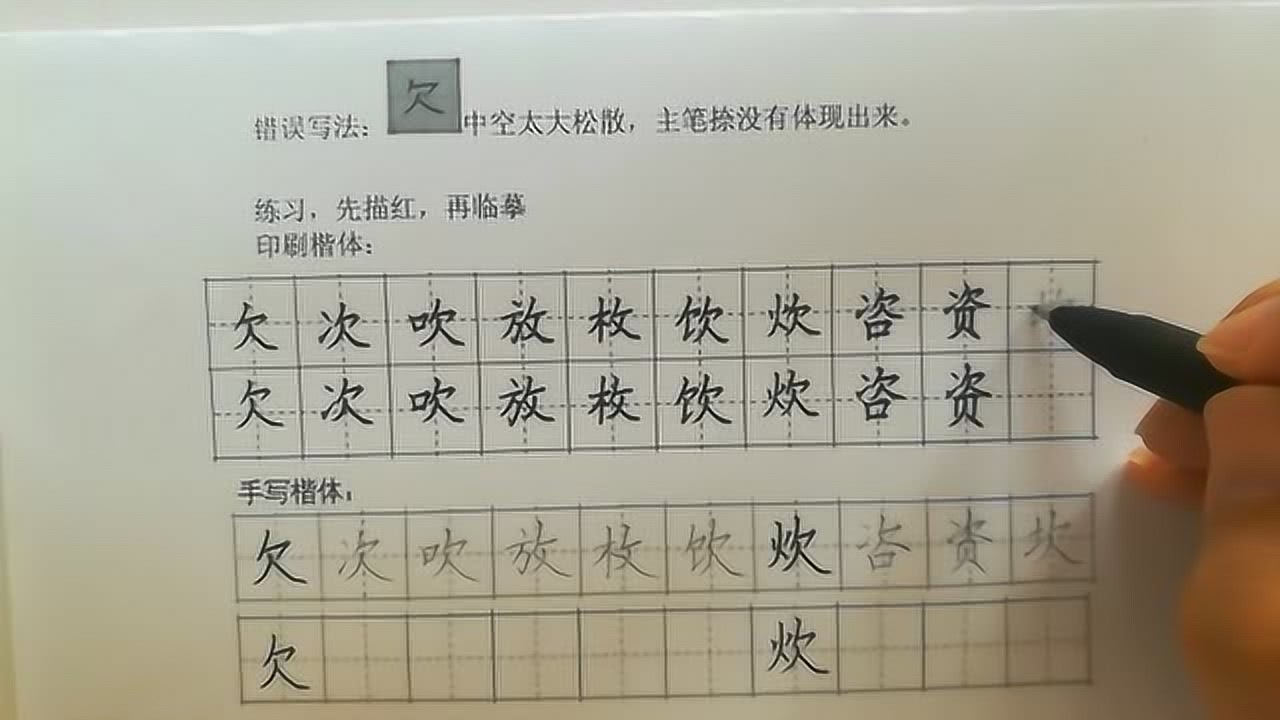 错误写法： 欠 中空太大松散，主笔捺没有体现出来。
练习，先描红，再临摹
印刷楷体：
欠 次 吹 放 枚 饮 炊 咨 资
欠 次 吹 放 枚 饮 炊 咨 资
手写楷体：
欠 次 吹 放 枚 饮 炊 咨 资 坎
欠 炊